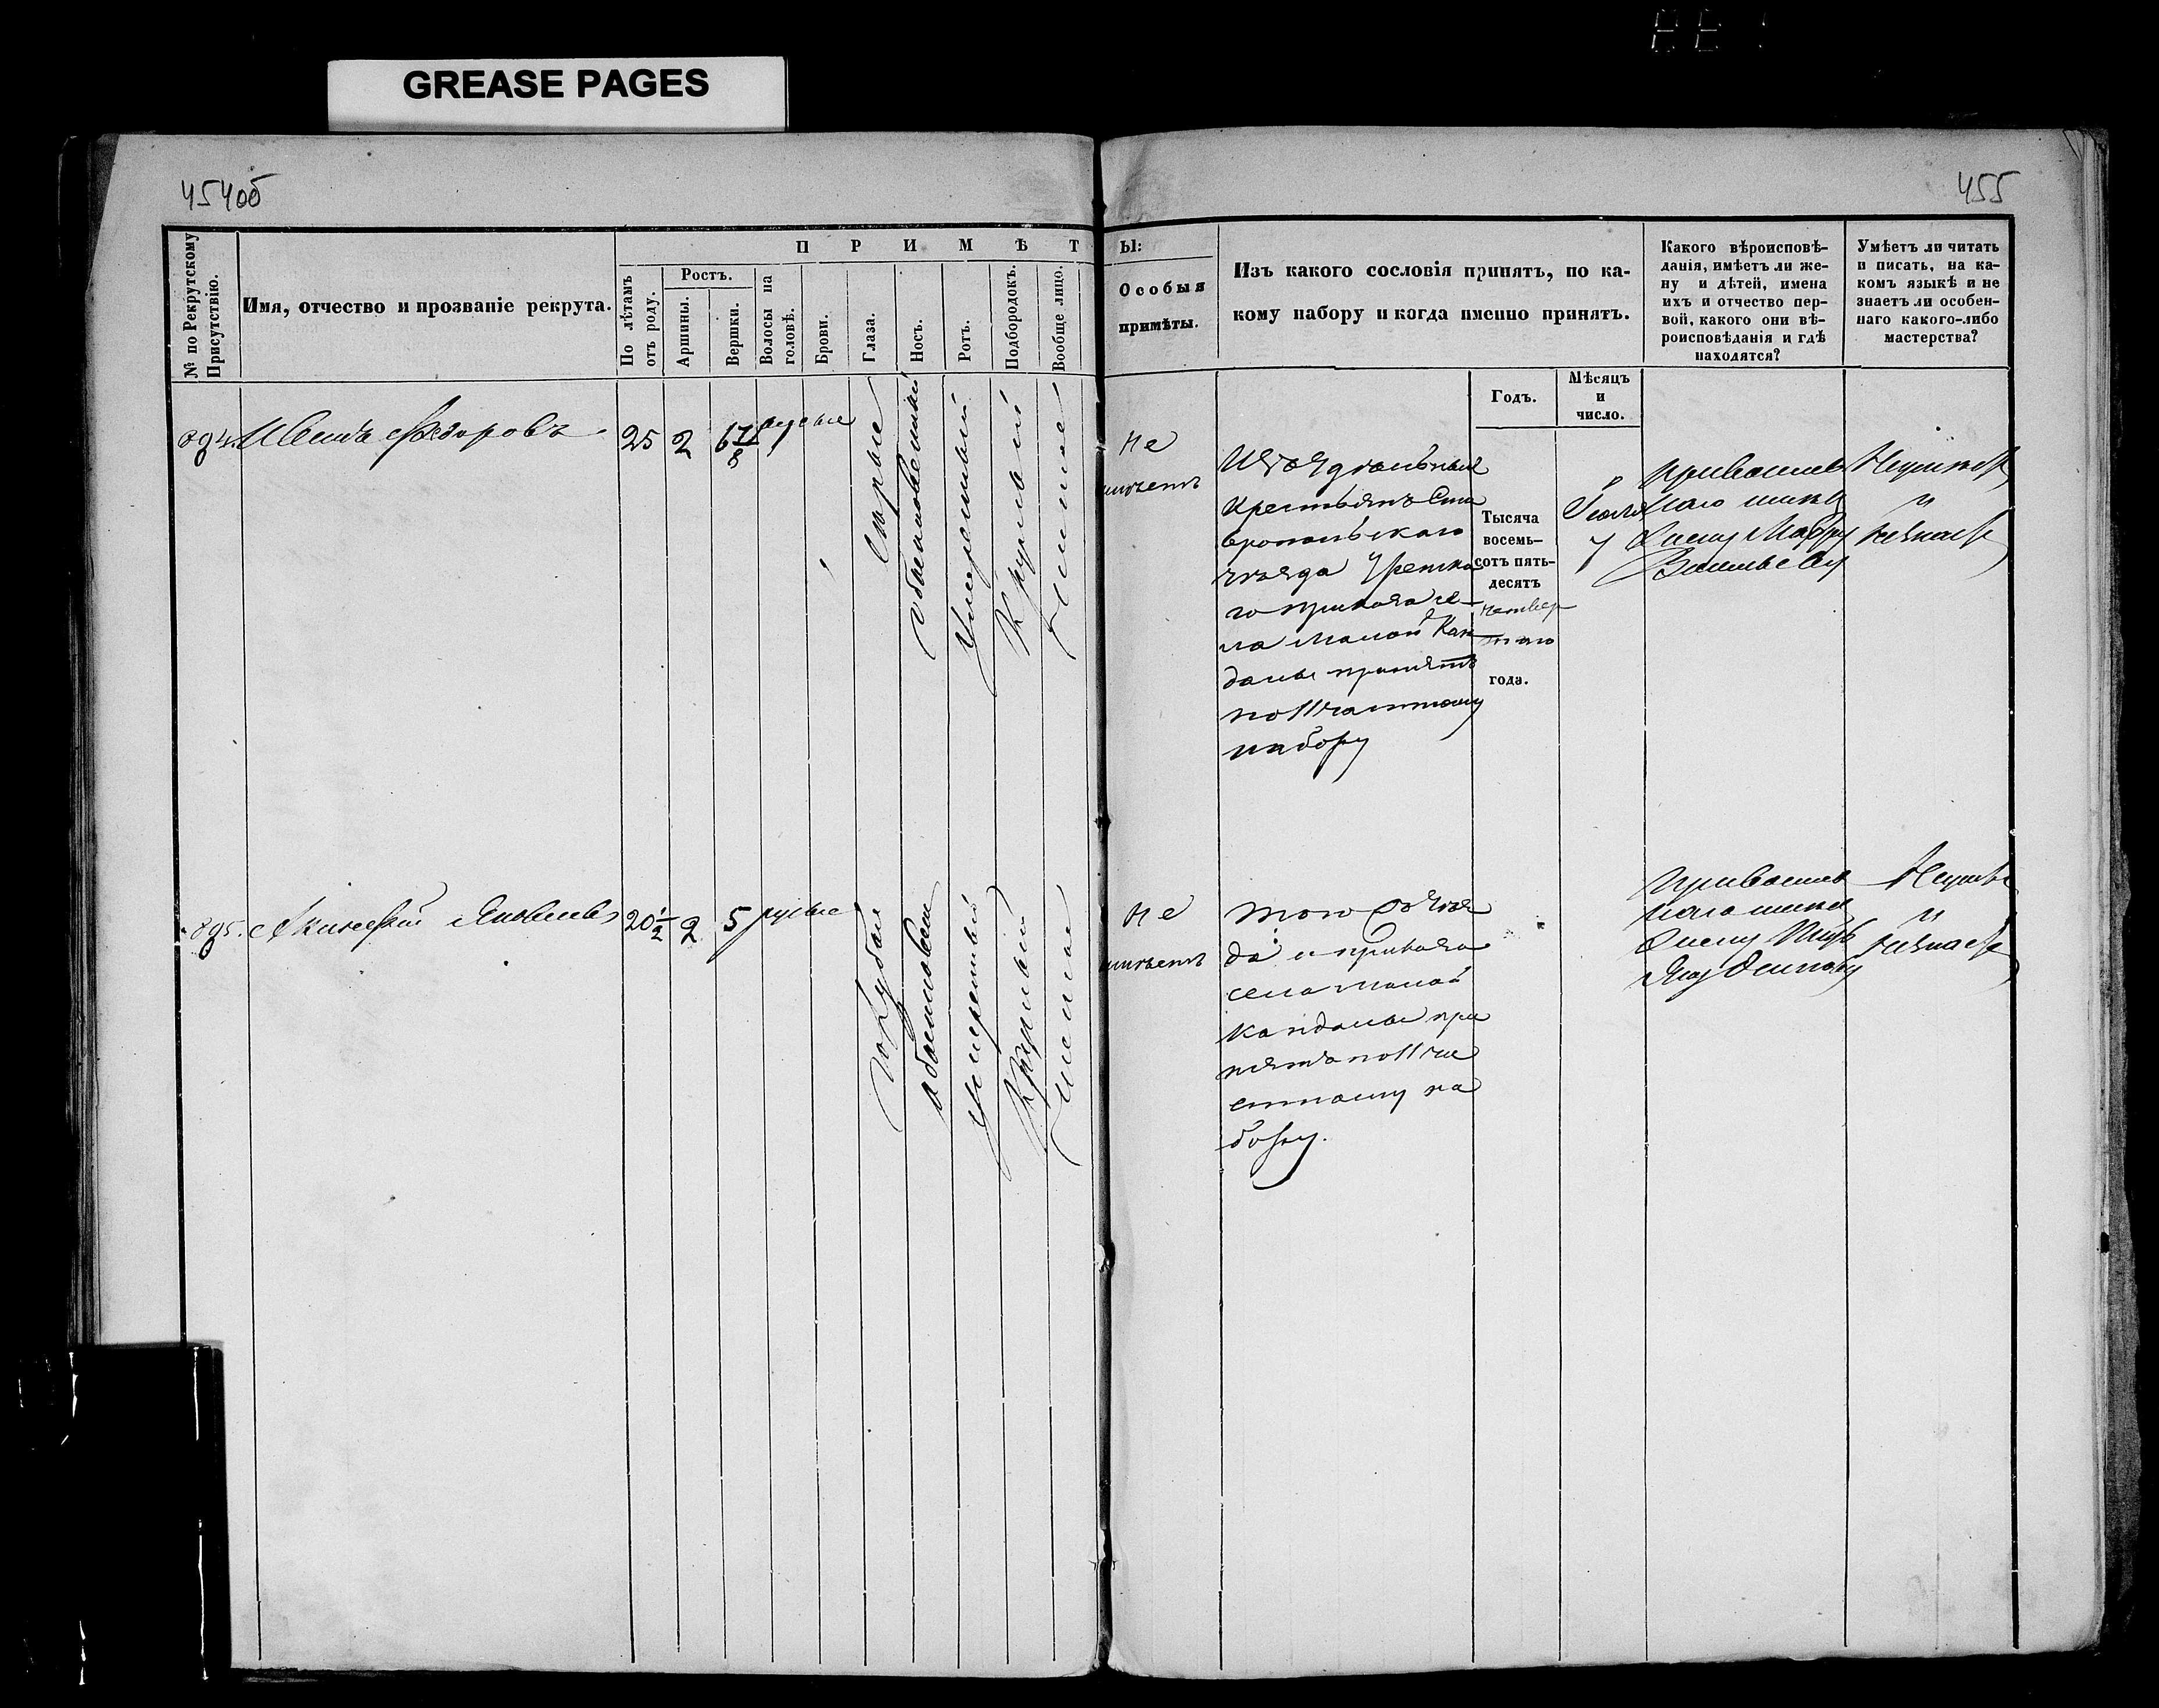 GREASE PAGES
454об
455
№ по Рекрутскому Присутствію.
Имя, отчество и прозваніе рекрута.
ПРИМѢТЫ:
По лѣтамъ отъ роду.
Ростъ.
Аршины.
Вершки.
Волосы на головѣ.
Брови.
Глаза.
Носъ.
Ротъ.
Подбородокъ.
Вообще лицо.
Особыя
примѣты.
Изъ какого сословія принятъ, по ка-
кому набору и когда именно принятъ.
Годъ.
Мѣсяцъ
и
число.
Какого вѣроисповѣ-
данія, имѣетъ ли же-
ну и дѣтей, имена
ихъ и отчество пер-
вой, какого они вѣ-
роисповѣданія и гдѣ
находятся?
Умѣетъ ли читать
и писать, на ка-
комъ языкѣ и не
знаетъ ли особен-
наго какого-либо
мастерства?
894. Федоровъ
25
2
6 7/8
русые
серые
обыкновенный
умеренный
круглый
чистое
не
имѣетъ
Изъ удѣльныхъ
крестьянъ Ста
вропольскаго
уѣзда
го приказа се-
ла Малой Кан
далы принятъ
по 11 частному
набору
Тысяча
восемь-
сотъ пять-
десятъ
четвер
таго
года.
Іюля
7
Православ
наго
жену Мавру
Васильеву
и
895. Яковлевъ
20 1/2
2
5
русые
голубые
обыкновен
умеренный
круглый
чистое
не
имѣетъ
того уѣз
да и приказа
села Малой
Кандалы при
нятъ по 11 ча
стному на
бору.
Православ
наго
жену
Осипову
и